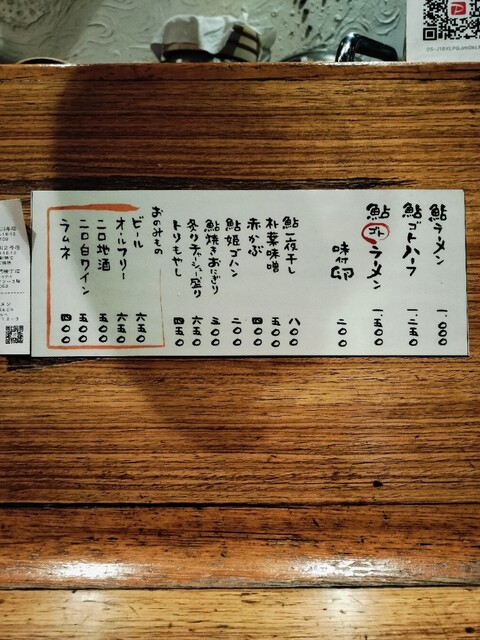 鮎ラメン 一、〇〇〇
鮎ゴトハーフ 一、二五〇
鮎ゴトラーメン 一、五〇〇
味付卵 二〇〇
鮎一夜干し 八〇〇
朴葉味噌 五〇〇
赤かぶ 四〇〇
鮎姫ゴハン 二〇〇
鮎焼きおにぎり 三〇〇
炙りチャーシュー盛り 六五〇
トリもやし 四五〇
おのみもの
ビール 六五〇
オールフリー 六五〇
二口地酒 五〇〇
二口白ワイン 五〇〇
ラムネ 四〇〇